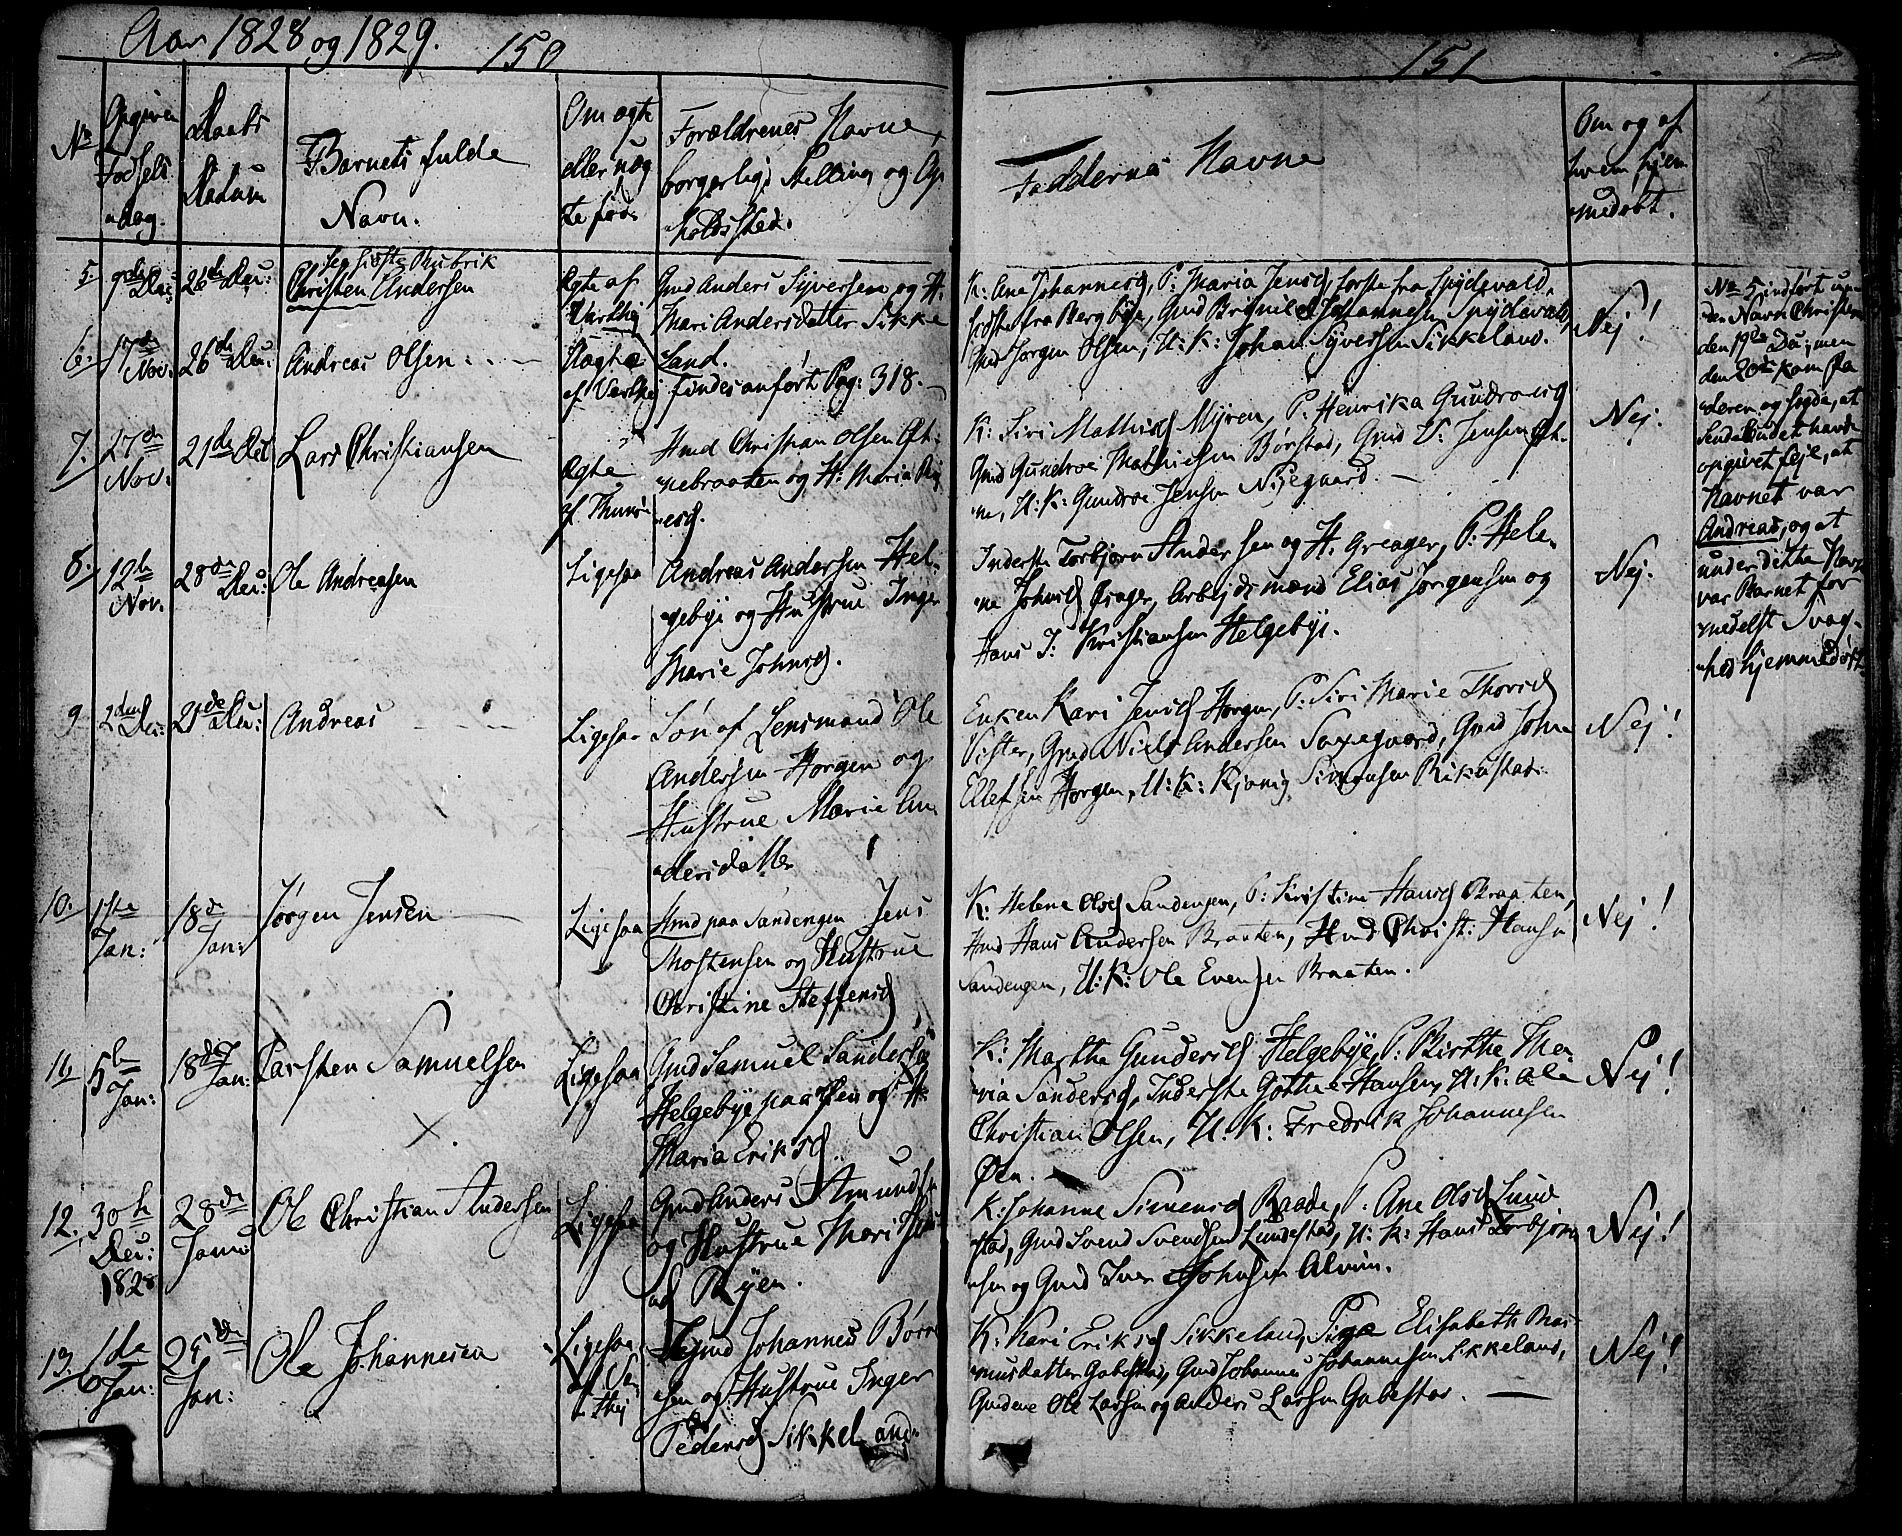 Aar 1828 og 1829.
150
No
Opgiven
Fødsels
dag.
Daabs
Datum
Barnets fulde
Navn.
Om ægte
eller uæg
te fød.
Forældrenes Navne,
borgerlige Stilling og Op
holdssted.
5.
9de Dec:
26de Dec:
See sidste Rubrik
Christen Andersen
Ægte af
Varthei
Gmd Anders Syversen og H.
Mari Andersdatter Sikke
land.
6.
17de
Nov.
26de Dec:
Andreas Olsen.
Uægte
af Varthei
Findes anført Pag: 318.
7.
27de
Nov.
21de Dec
Lars Christiansen
Ægte
af Thunøe
Hmd Christian Olsen
nebraaten og H: Maria
8.
12te
Nov.
28de Dec:
Ole Andreasen
Ligesaa
Andreas Andersen Hel
gebye og Hustrue Inger
Marie Johnsd.
9
2den Dec:
21de Dec:
Andreas
Ligesaa
Søn af Lensmand Ole
Andersen Horgen og
Hustrue Marie An
dersdatter
10.
1ste
Jan:
18de
Jan:
Jørgen Jensen
Ligesaa
Hmd paa Sandengen Jens
Mostensen og Hustrue
Christine Steffensd
11
5te
Jan:
18de
Jan:
Carsten Samuelsen
Ligesaa
Gmd Samuel Sandersen
Helgebye paa Øen og H.
Maria Eriksd.
12.
30te
Dec:
1828
28de
Janu:
Ole Christian Andersen
Ligesaa
Gmd Anders Amundsen
og Hustrue Mari
Ryen.
13.
1de
Jan:
25de
Jan:
Ole Johannesen
Ligesaa
af Va
rthei
Johannes Børre
sen og Hustrue Inger
Pedersd Sikkeland.
151
Faddernes Navne
Om og af
hvem hjem
medøbt.
K: Ane Johannesd, P: Maria Jensd, første fra Spydevold,
sidste fra Bergbye, Gmd Brynild Johannesen Spydevold,
Gmd Jørgen Olsen, U: K: Johan Syversen Sikkeland.
Nej!
K: Siri Mathisd Myren, P: Henrika Gundrosd
Gmd Gundroe Mathiesen Børstad, Gmd U: Jensen
U: K: Gundroe Jensen Nygaard.
Nej.
Inderste Torbjørn Andersen og H. Greager, P: Hele
ne Johnsd Øiager, Arbejdsmænd Elias Jørgensen og
Hans J: Kristiansen Helgebye.
Nej.
Enken Kari Jensd Horgen, P: Siri Marie Thorsd
Vister, Gmd Niels Andersen Saxegaard, Gmd John
Ellefsen Horgen, U: K: Simensen Rikustad.
Nej!
K: Helene Olsd Sandengen, P: Kirstine Hansd Braaten,
Hmd Hans Andersen Braaten, Hmd Christ: Hansn
Sandengen, U: K: Ole Evensen Braaten.
Nej!
K: Marthe Gundersd Helgebye, P: Birthe The
ria Sandersd, Inderste Gothe Hansen, U: K: Ole
Christian Olsen, U: K: Fredrik Johannesen
Øen.
Nej!
K: Johanne Simensd Raade, P. Ane Olsd Lund
stad, Gmd Svend Svendsen Lundestad, U: K: Hans Torbjørn
sen og Gmd Iver Johnsen Alvim.
Nej!
K: Kari Eriksd Sikkeland, Pige Elisabeth Ras
musdatter Gabestad, Gmd Johannes Johannesen Sikkeland,
Gmdene Ole Larsen og Anders Larsen Gabestad.
Nej!
No 5 indført un
der Navn Christen
den 19de Dec; men
den 20de kom Fa
deren og sagde, at
Sendebudet havde
opgivet feje, at
Navnet var
Andreas, og at
under dette Navn
var Barnet for
medelst Svag
hed hjemmedøbt